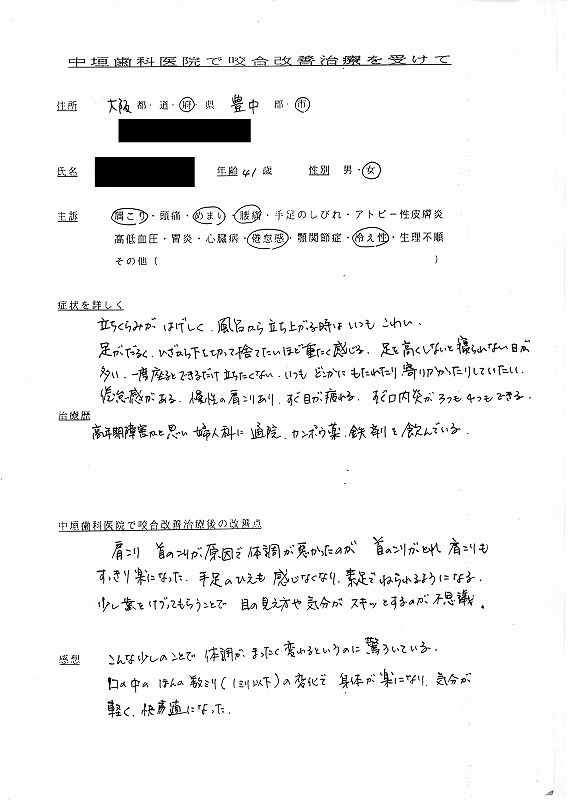 中垣歯科医院で咬合改善治療を受けて
住所 大阪 都・道・府・県 豊中 郡・市
氏名 年齢 41 歳 性別 男・女
主訴 肩こり・頭痛・めまい・腰痛・手足のしびれ・アトピー性皮膚炎
高低血圧・胃炎・心臓病・倦怠感・顎関節症・冷え性・生理不順
その他( )
症状を詳しく
立ちくらみが はげしく、風呂から立ち上がる時は いつも こわい。
足がだるく、ひざから下を切って捨てたいほど重たく感じる。足を高くしないと寝られない日が
多い。一度座るとできるだけ立ちたくない。いつも どこかに もたれたり 寄りかかったりしていたい。
倦怠感がある。慢性の肩こりあり、すぐ目が疲れる。すぐ口内炎が3つも4つもできる。
治療歴
更年期障害かと思い 婦人科に 通院、カンポウ薬、鉄剤を 飲んでいる。
中垣歯科医院で咬合改善治療後の改善点
肩こり 首のこりが原因で 体調が悪かったのが 首のこりがとれ 肩こりも
すっきり楽になった。手足のひえも 感じなくなり、素足でねられるようになる。
少し歯をけずってもらうことで 目の見え方や 気分が スキッとするのが 不思議。
感想 こんな少しのことで 体調が まったく 変わるというのに 驚ろいている。
口の中の ほんの数ミリ(1ミリ以下)の変化で 身体が 楽になり、気分が
軽く、快適になった。